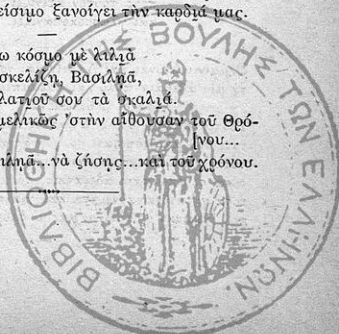 είσιμο ξανοίγει τὴν καρδιά μας.
ω κόσμο μὲ λιλιὰ
σκελίζῃ, Βασιληᾶ,
λατιοῦ σου τὰ σκαλιά.
μελικῶς ᾿στὴν αἴθουσαν τοῦ Θρό-
[νου...
ιληᾶ...νὰ ζήσῃς...καὶ τοῦ χρόνου.
ΒΙΒΛΙΟΘΗΚΗ ΤΗΣ ΒΟΥΛΗΣ ΤΩΝ ΕΛΛΗΝΩΝ